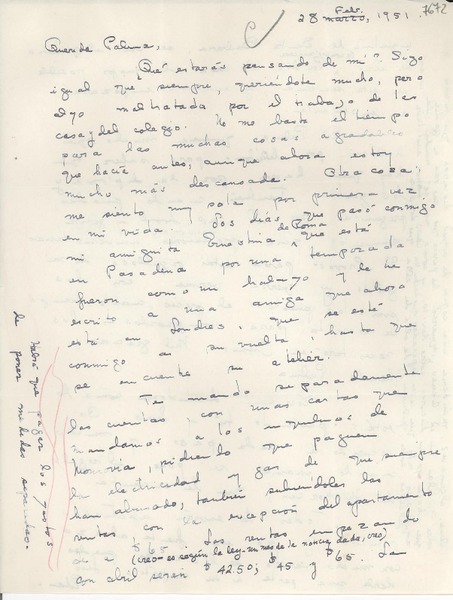 7672
Feb.
28 marzo, 1951.
Querida Palma,
¿Qué estarás pensando de mí? Sigo
igual que siempre, queriéndote mucho, pero
algo maltratada por el trabajo de las
casas y del colegio. No me basta el tiempo
para las muchas cosas agradables
que hacía antes, aunque ahora estoy
mucho más descansada. Otra cosa:
me siento muy sola por primera vez
en mi vida. Dos días que pasó conmigo
mi amiguita Ernestina de Roma que está
en Pasadena por una temporada
fueron como un halago y le he
escrito a una amiga que ahora
está en Londres, que se esté
conmigo a su vuelta, hasta que
se encuentre su atelier.
Te mando separadamente
las cuentas, con unas cartas que
mandamos a los inquilinos de
Monrovia, pidiendo que paguen
la electricidad y gas de que siempre
han abusado, también subiéndoles las
rentas con la excepción del apartamento
a $65. Las rentas empezando
(creo—es según la ley—un mes de la noticia dada, creo)
con abril serán $42.50; $45 y $65. La
Habrá que pagar los gastos
de poner medidas separadas.